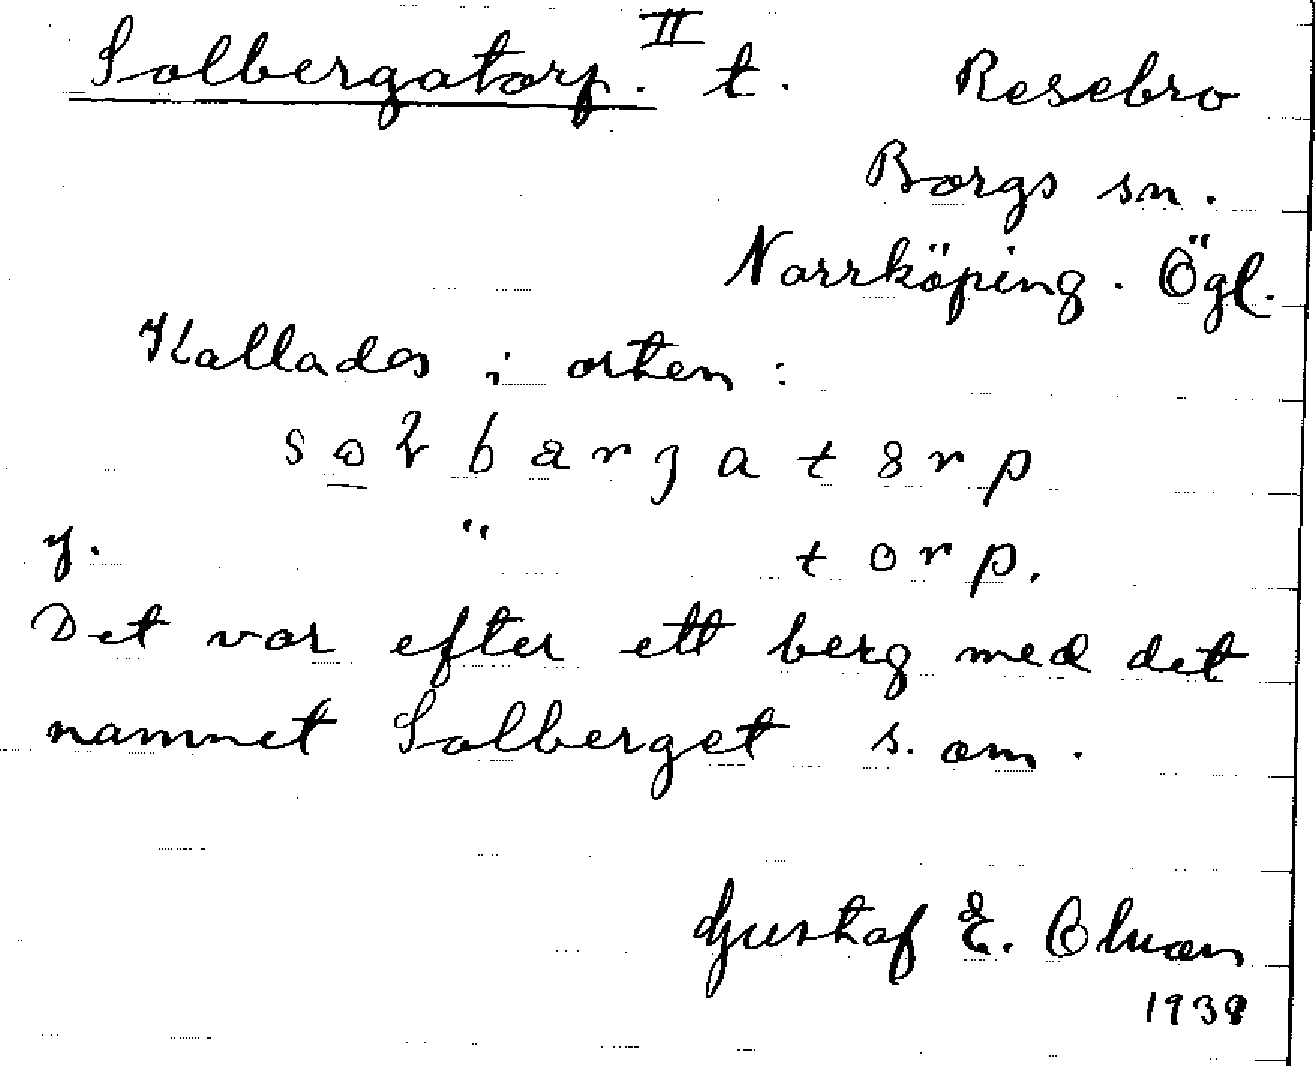 Solbergatorp. II t. Resebro
Borgs sn.
Norrköping. Ögl.
Kallades i orten:
so̲lbärgatorp
y. " torp.
Det var efter ett berg med det
namnet Solberget s. om.
Gustaf E.
1939